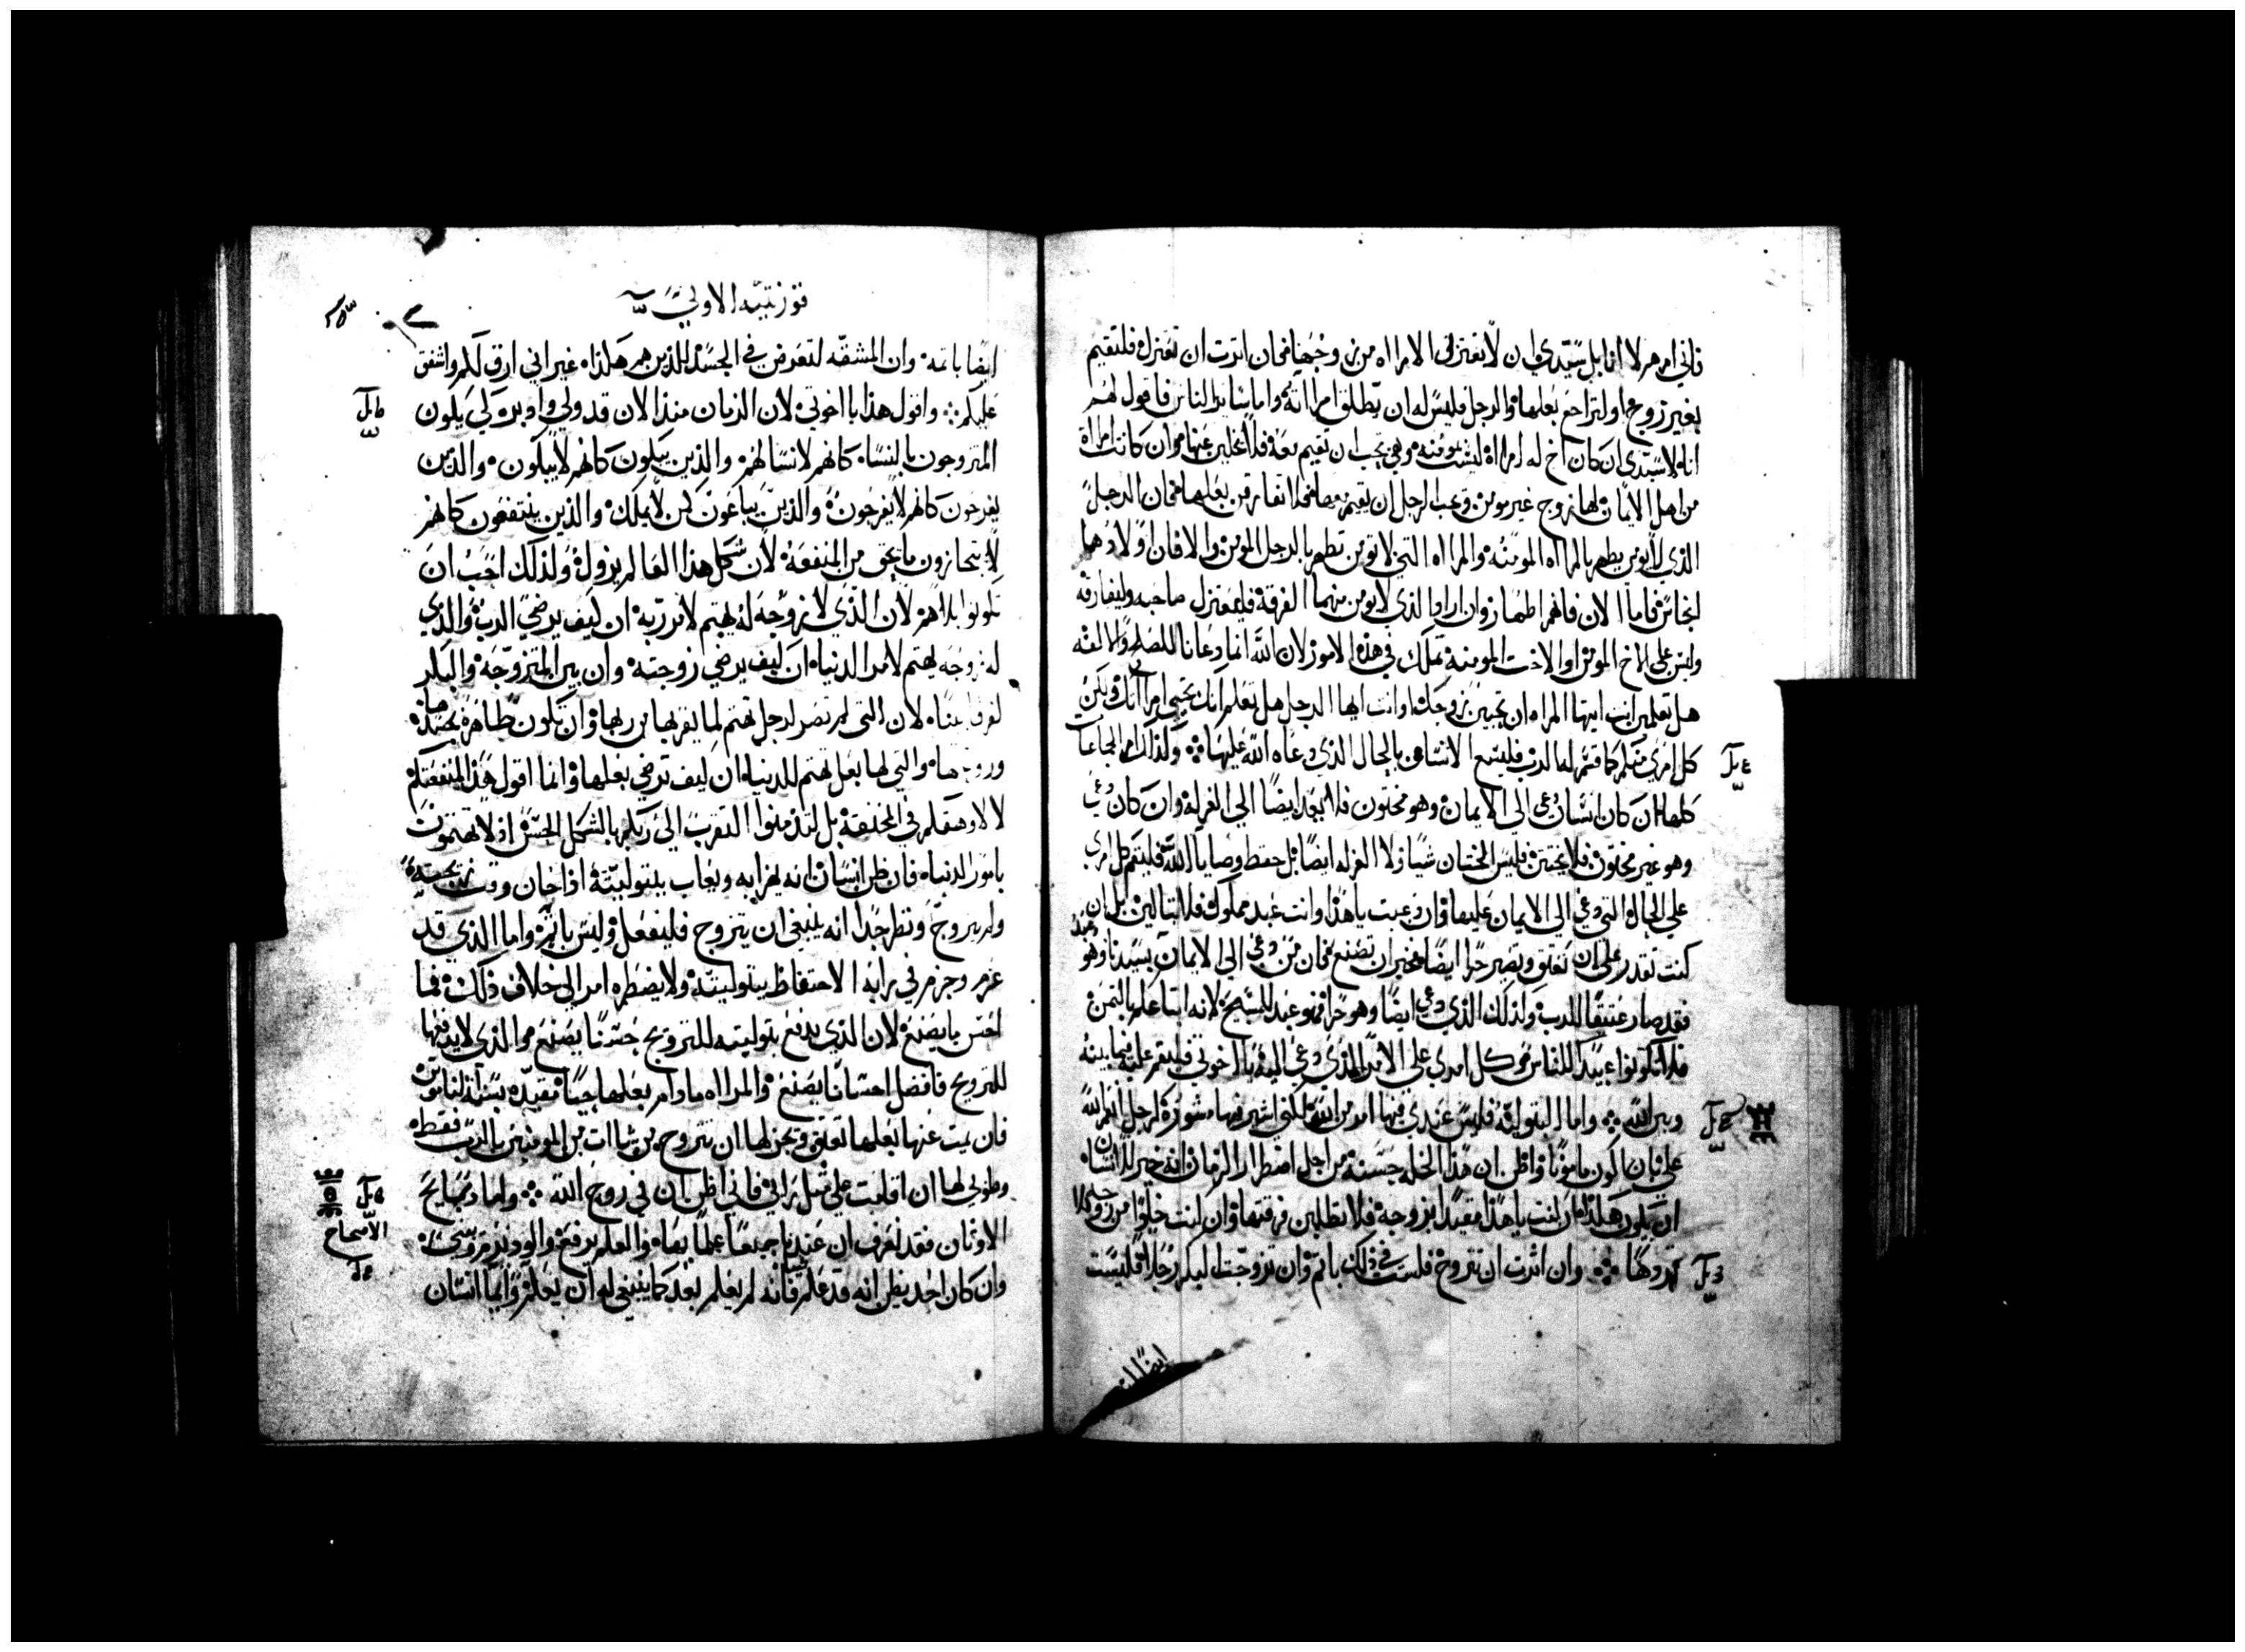 فاني امرهم لا انا بل سيدي وان لا تعتزل الامراه من زوجها فان اثرت ان تعتزل فلتقيم
بغير زوج او لتراجع بعلها والرجل فليس له ان يطلق امراته واما سائر الناس فاقول لهم
انا لا سيدي ان كان اخ له امراة ليست مومنه وهي تحب ان تقيم معه فلا يخلين عنها وان كانت امراة
من اهل الايمان لها زوج غير مومن وتحب الرجل ان يقيم معها فلا تفارقن بعلها فان الرجل
الذي لا يومن يطهر بالمراه المومنه والمراه التي لا تومن تطهر بالرجل المومن والا فان اولادهما
انجاس فاما الان فانهم اطهار وان اراد الذي لا يومن منهما الفرقة فليعتزل صاحبه وليفارقه
وليس على الاخ المومن او الاخت المومنه تملك في هذه الامور لان الله انما دعانا للصلح والالفه
هل تعلمين انت ايتها المراه ان تحيين زوجك او انت ايها الرجل هل تعلم انك تحيي امراتك ولكن
كل امري منكم كما قسم له الرب فليسع الانسان بالحال الذي دعاه الله عليها وكذلك امر الجماعات
كلها ان كان انسان دعي الى الايمان وهو مختون فلا يعد ايضا الى الغرله وان كان دعي
وهو غير مختون فلا يختتن فليس الختان شيا ولا الغرله ايضا بل حفظ وصايا الله فليقم كل امري
علي الحال التي دعي الى الايمان عليها وان دعيت ياهذا وانت عبد مملوك فلا تبالين بل ان
كنت تقدر علي ان تعتق وتصير حرا ايضا فخير ان تصنع فان من دعي الى الايمان بسيدنا وهو عبد
فقد صار عتيقا للرب وكذلك الذي دعي ايضا وهو حر فهو عبد للمسيح لانه ابتاعكم بالثمن
فلا تكونوا عبيدا للناس كل امري على الامر الذي دعي اليه يا اخوتي فليقم عليه فيما بينه
وبين الله واما البتوليه فليس عندي فيها امر من الله لكني اشير فيها مشورة كرجل انعم الله
علي بان اكون مامونا واظن ان هذا الخله حسنه من اجل اضطرار الزمان انه خير للانسان
ان يكون هكذا ان كنت ياهذا مقيدا بزوجه فلا تطلبن فرقتها وان كنت خلوا من زوجه فلا
تريدها وان اثرت ان تتزوج فلست في ذلك باثم وان تزوجت البكر رجلا فليست
ايضا
قورنتيه الاولي
ايضا باثمه وان المشقه لتعرض في الجسد للذين هم هكذا غير اني ارق لكم واشفق
عليكم واقول هذا يا اخوتي لان الزمان منذ الان قد ولي وادبر لكي يكون
المتزوجون بالنساء كانهم لا نسا لهم والذين يبكون كانهم لا يبكون والذين
يفرحون كانهم لا يفرحون والذين يبتاعون كمن لا يملك والذين ينتفعون كانهم
لا يتجازون ما يحق من المنفعة لان شكل هذا العالم يزول ولذلك احب ان
تكونوا بلا هم لان الذي لا زوجه له يهتم لامر ربه ان كيف يرضي الرب والذي
له زوجه يهتم لامر الدنيا ان كيف يرضي زوجته وان بين المتزوجه والبكر
لفرقا بينا لان التي لم تصر لرجل تهتم لما يقربها من ربها وان تكون طاهرة بجسدها
وروحها والتي لها بعل تهتم للدنيا ان كيف ترضي بعلها وانما اقول هذا لمنفعتكم
لا لاوهقكم في المخنقة بل لتدمنوا التقرب الى ربكم بالشكل الحسن اذ لا تهتمون
بامور الدنيا فان ظن انسان انه يهزا به ويعاب ببتوليته اذا حان وقت تزويجه
ولم يزوج ونظر جدا انه ينبغي ان يتزوج فليفعل وليس باثم واما الذي قد
عزم وجزم في رايه الاحتفاظ ببتوليته ولا يضطره امر الى خلاف ذلك فما
احسن ما يصنع لان الذي يدفع بتوليته للتزويج حسنا يصنع والذي لا يدفعها
للتزويج فافضل احسانا يصنع والمراه ما دام بعلها حيا مقيده بسنة الناموس
فان يمت عنها بعلها تعتق ويجز لها ان تتزوج من شاات من المومنين بالرب فقط
وطوبي لها ان اقامت علي مثل رايي فاني اظن ان في روح الله واما ذبايح
الاوثان فقد نعرف ان عندنا جميعا علما بها والعلم يرفع والود يزيد ويبني
وان كان احد يظن انه قد علم شيا فانه لم يعلم بعد كما ينبغي له ان يعلم وايما انسان
الاصحاح